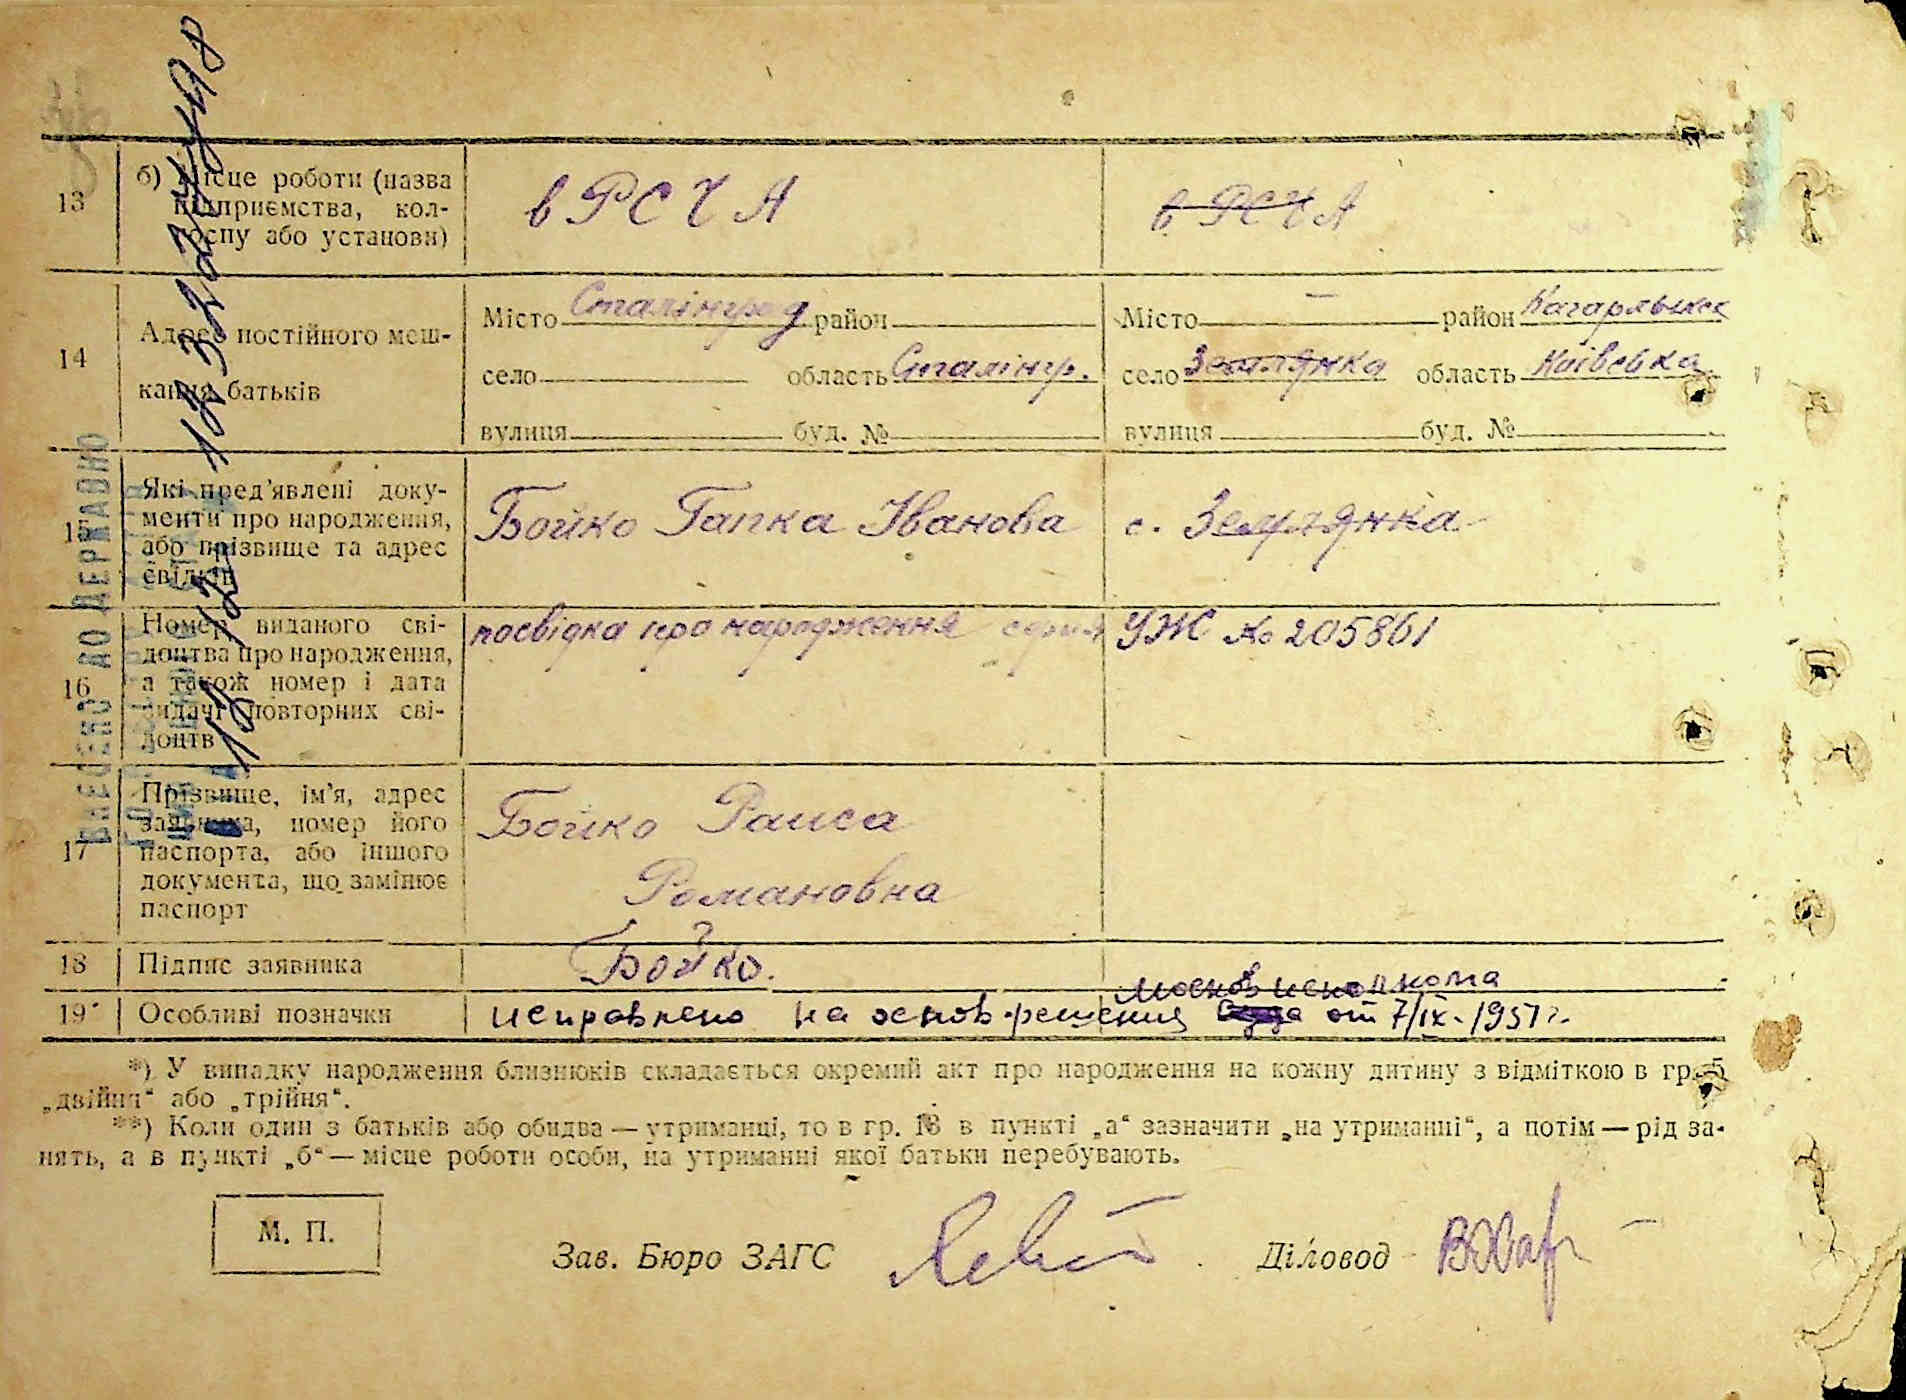 13
б) Місце роботи (назва
підприємства, кол-
госпу або установи)
в РСЧА
в РСЧА
14
Адрес постійного меш-
кання батьків
Місто Сталінград район
село область Сталінгр.
вулиця буд. №
Місто — район Кагарлыкск
село Землянка область Київська
вулиця буд. №
15
Які пред'явлені доку-
менти про народження,
або прізвище та адрес
свідків
Бойко Гапка Іванова
с. Землянка
16
Номер виданого сві-
доцтва про народження,
а також номер і дата
видачі повторних сві-
доцтв
посвідка про народження серия УЖ № 205861
17
Прізвище, ім'я, адрес
заявника, номер його
паспорта, або іншого
документа, що замінює
паспорт
Бойко Раиса
Романовна
18
Підпис заявника
Бойко.
19
Особливі позначки
исправлено на основ. решения от 7/IX-1957г.
*) У випадку народження близнюків складається окремий акт про народження на кожну дитину з відміткою в гр. 5
„двійня“ або „трійня“.
**) Коли один з батьків або обидва — утриманці, то в гр. 13 в пункті „а“ зазначити „на утриманні“, а потім — рід за-
нять, а в пункті „б“ — місце роботи особи, на утриманні якої батьки перебувають.
М. П.
Зав. Бюро ЗАГС
Діловод
ВНЕСЕНО ДО ДЕРЖАВНО